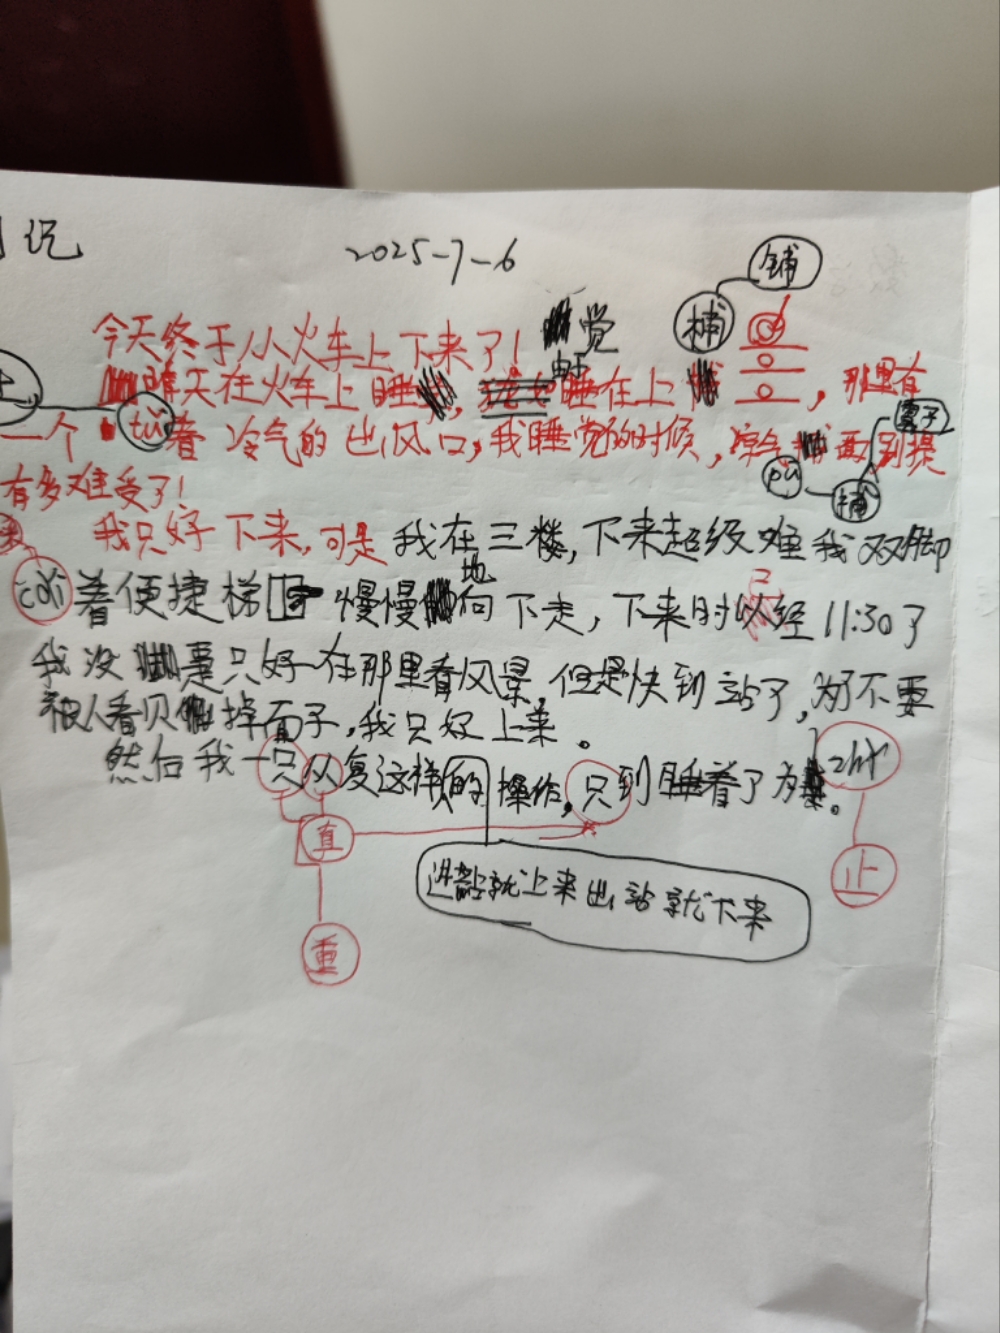 记 2025-7-6
铺
捕
今天终于从火车上下来了！ 觉
昨天在火车上睡，睡在上，那里有
一个 tǔ 着冷气的出风口，我睡觉的时候，冷气 面别提
pū 捕
有多难受了！
我只好下来，可是我在三楼，下来超级难我双脚
cǎi 着便捷梯 慢慢地向下走，下来时以经11:30了
已
我没事只好在那里看风景，但是快到站了，为了不要
被人看见掉面子，我只好上来。
然后我一只从复这样的操作，只到睡着了为 zhǐ。
直
止
重
进站就上来出站就下来